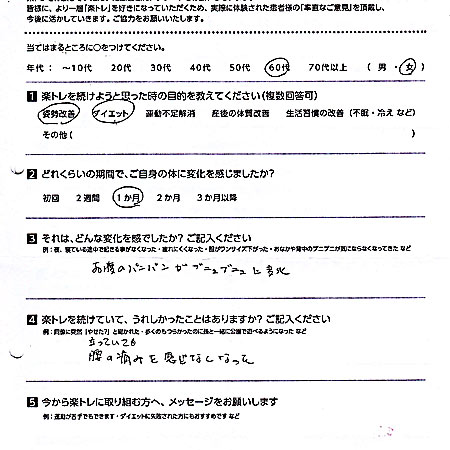 皆様に、より一層「楽トレ」を好きになっていただくため、実際に体験された患者様の「率直なご意見」を頂戴し、
今後に活かしていきます。ご協力をお願いいたします。
当てはまるところに○をつけてください。
年代： ～10代 20代 30代 40代 50代 60代 70代以上 （ 男 ・ 女 ）
1 楽トレを続けようと思った時の目的を教えてください（複数回答可）
姿勢改善 ダイエット 運動不足解消 産後の体質改善 生活習慣の改善（不眠・冷え など）
その他（ ）
2 どれくらいの期間で、ご自身の体に変化を感じましたか？
初回 2週間 1か月 2か月 3か月以降
3 それは、どんな変化を感でしたか？ ご記入ください
例：夜、寝ている途中で起きる事がなくなった・疲れにくくなった・服がワンサイズ下がった・おなかや背中のプニプニが気にならなくなってきた など
お腹のパンパンがプニュプニュに変化
4 楽トレを続けていて、うれしかったことはありますか？ ご記入ください
例：同僚に突然「やせた？」と聞かれた・歩くのもつらかったのに孫と一緒に公園で遊べるようになった など
立っていても
腰の痛みを感じなくなった
5 今から楽トレに取り組む方へ、メッセージをお願いします
例：運動が苦手でもできます・ダイエットに失敗された方にもおすすめです など